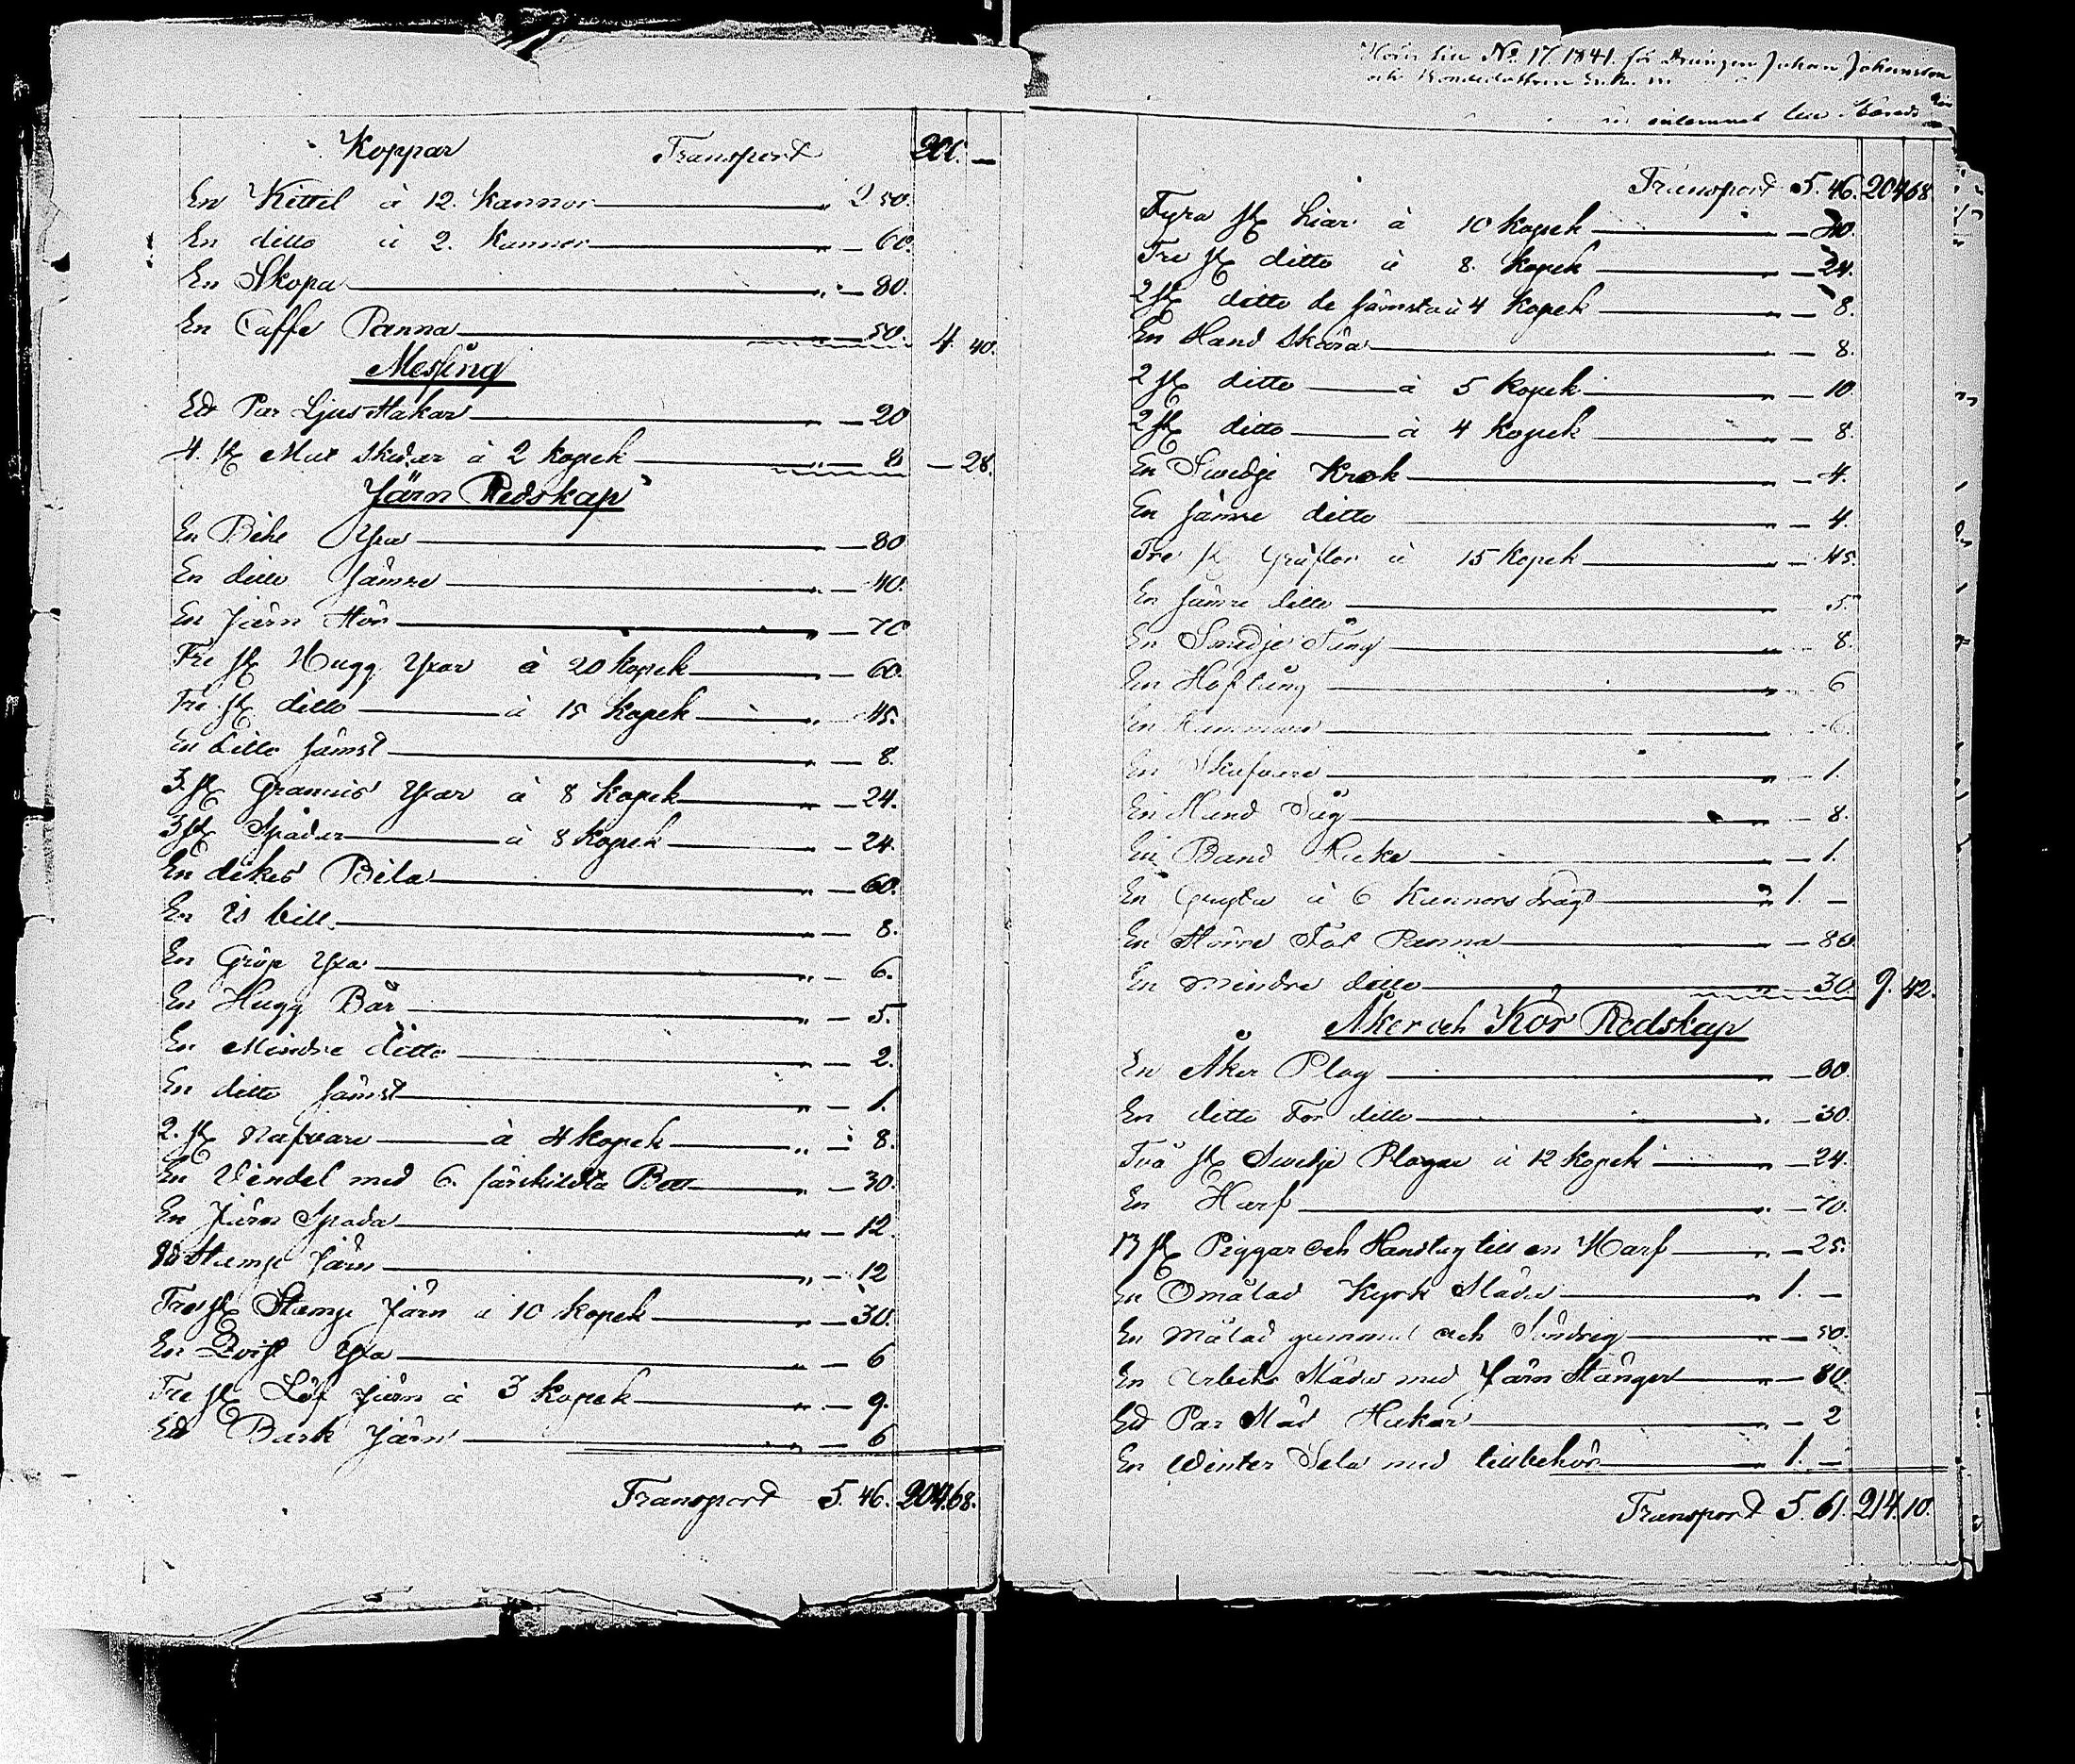 Koppar Transport 200. —
En Kittel à 12. Kannor " 2 50.
En ditto à 2. Kannor " — 60.
En Skopa " — 80.
En Caffe Panna 50. 4. 40.
Messing
Ett Par Ljus stakar " — 20
4. st Mat skedar à 2 kopek " — 8 — 28.
Järn Redskap
En Bile Yxa " — 80
En ditto sämre " — 40.
En Järn Stör " — 70
Tre st Hugg Yxor à 20 kopek " — 60.
Tre st ditto à 15 kopek " 45.
En ditto sämst " — 8.
3. st Yxor à 8 kopek " — 24.
3 st Spadar à 8 kopek " — 24.
En dikes Bila " — 60.
En is bill " — 8.
En Gröp Yxa " — 6.
En Hugg Bår " — 5.
En Mindre ditto " — 2.
En ditto sämst " — 1.
2. st Nafvare à 4 kopek " — 8.
En Vindel med 6. särskildta Borr " — 30.
En Järn Spada " — 12.
Ett Stamp Järn " — 12
Tre st Stamp Järn à 10 kopek " — 30.
En Yxa " — 6
Tre st Löf Järn à 3 kopek " — 9.
Ett Bark Järn " — 6
Transport 5. 46. 204.68.
No 17. 1841. för Drängen Johan Johansson
och Bondedottren
Transport 5. 46. 204.68.
Fyra st Liar à 10 kopek " — 40.
Tre st ditto à 8. kopek " — 24.
2 st ditto de sämsta à 4 kopek " — 8.
En Hand skära " — 8.
2 st ditto à 5 kopek " — 10.
2 st ditto à 4 kopek " — 8.
En Swedje Krok " — 4.
En sämre ditto " — 4
Tre st Gräftor à 15 kopek " — 45.
En sämre ditto " 5.
En Smedje Tång " 8.
En Hoftång " 6
En Hammare " 6.
En Skafvare " — 1.
En Hand Såg " — 8.
En Band Hake " — 1.
En Gryta à 6 Kannors dragt " 1. —
En Större Panna " — 80.
En mindre ditto 30. 9. 42.
Åker och Kör Redskap
En Åker Plog " — 80.
En ditto Tor ditto " — 30.
Två st Swedje Plogar à 12 kopek " — 24.
En Harf " — 70.
13 st Piggar och Handtag till en Harf " — 25.
En Omålad Kyrk Släda " 1. —
En målad gammal och Söndrig " — 50.
En Arbets Släda med Järn Stänger " — 80.
Ett Par Släd Hakar " — 2
En Winter Sela med tillbehör " 1. —
Transport 5. 61. 214.10.